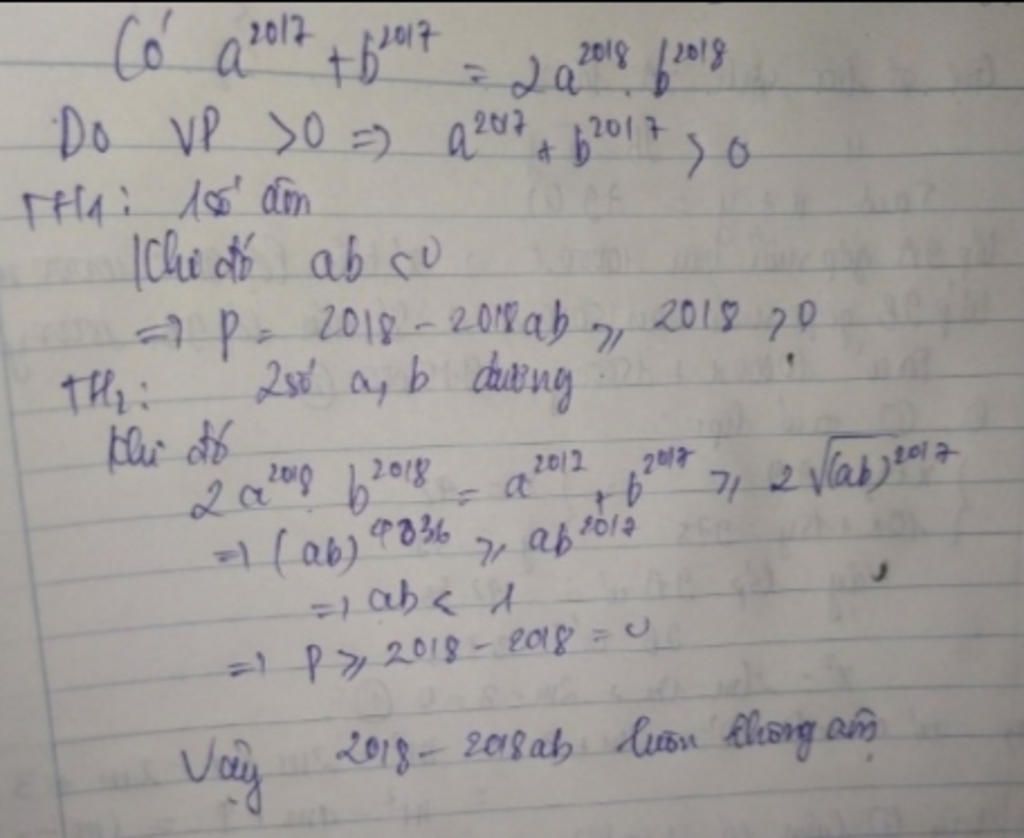 Có a^2017 + b^2017 = 2a^2018 . b^2018
Do VP > 0 => a^2017 + b^2017 > 0
TH1: 1 số âm
Khi đó ab < 0
=> P = 2018 - 2018ab ≥ 2018 > 0
TH2: 2 số a, b dương
Khi đó
2a^2018 b^2018 = a^2017 + b^2017 ≥ 2√(ab)^2017
=> (ab)^4036 ≥ ab^2017
=> ab < 1
=> P ≥ 2018 - 2018 = 0
Vậy 2018 - 2018ab luôn không âm